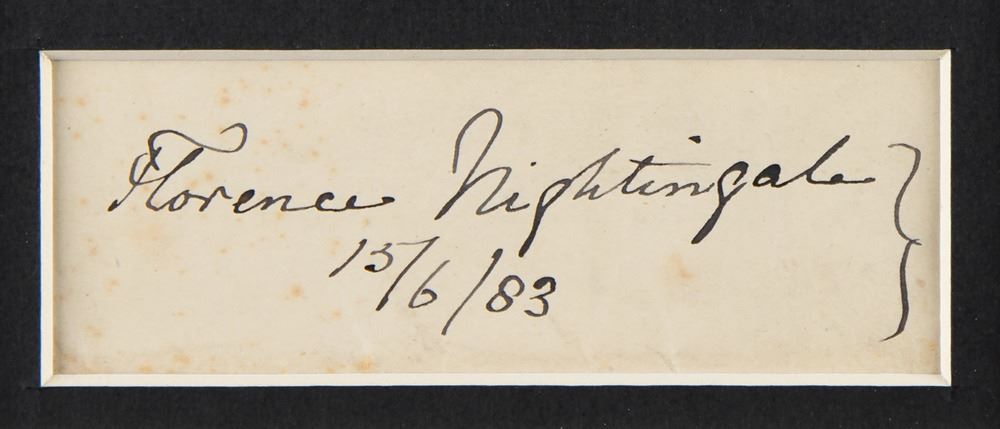 Florence Nightingale }
15/6/83